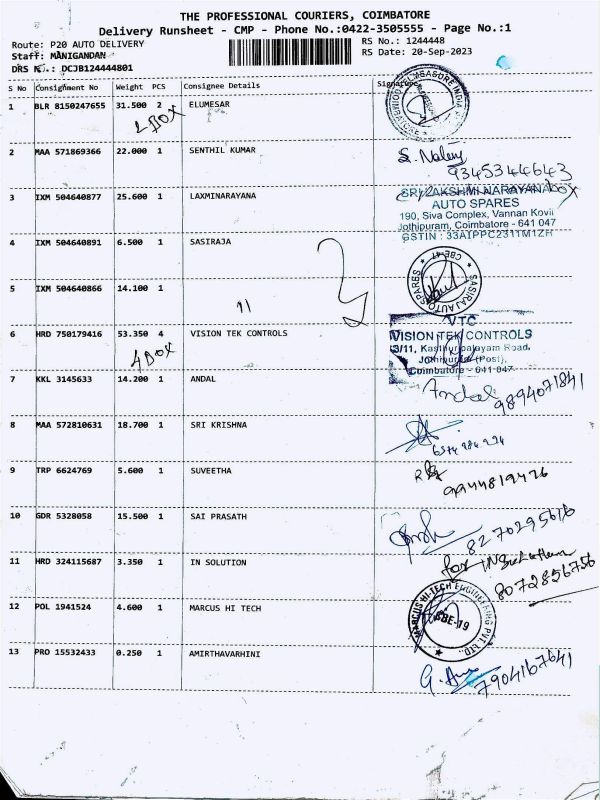 THE PROFESSIONAL COURIERS, COIMBATORE
Delivery Runsheet - CMP - Phone No.:0422-3505555 - Page No.:1
Route: P20 AUTO DELIVERY
RS No.: 1244448
Staff: MANIGANDAN
RS Date: 20-Sep-2023
DRS No.: DCJB124444801
S No Consignment No Weight PCS Consignee Details Signature
1 BLR 8150247655 31.500 2 ELUMESAR
2 BOX
2 MAA 571869366 22.000 1 SENTHIL KUMAR
9345344643
3 IXM 504640877 25.600 1 LAXMINARAYANA
SRI LAKSHMI NARAYANA
AUTO SPARES
190, Siva Complex, Vannan Kovil
Jothipuram, Coimbatore - 641 047
4 IXM 504640891 6.500 1 SASIRAJA
SASIRAJ AUTO SPARES
CBE-47
5 IXM 504640866 14.100 1
"
6 HRD 750179416 53.350 4 VISION TEK CONTROLS
4 BOX
VTC
VISION TEK CONTROLS
Kasthuripalayam Road,
Jothipuram (Post),
Coimbatore - 641 047
7 KKL 3145633 14.200 1 ANDAL
Andal
9894071841
8 MAA 572810631 18.700 1 SRI KRISHNA
9 TRP 6624769 5.600 1 SUVEETHA
9944819426
10 GDR 5328058 15.500 1 SAI PRASATH
8270295616
11 HRD 324115687 3.350 1 IN SOLUTION
for IN Solution
8072856756
12 POL 1941524 4.600 1 MARCUS HI TECH
MARCUS HI-TECH ENGINEERING PVT. LTD.
CBE-19
13 PRO 15532433 0.250 1 AMIRTHAVARHINI
7904167641